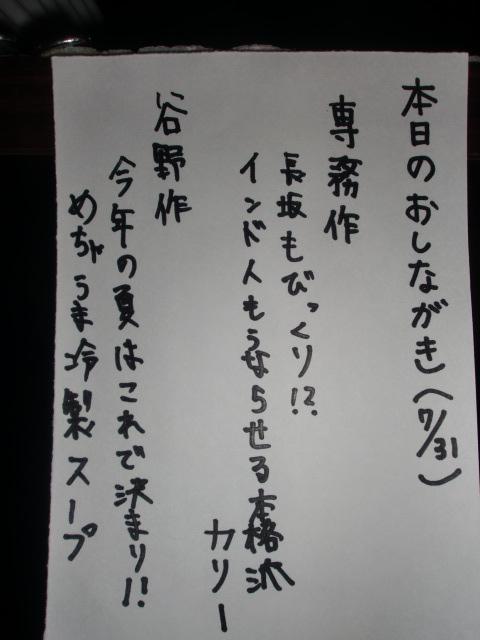 本日のおしながき(7/31)
専務作
長坂もびっくり!?
インド人もうならせる本格派
カリー
谷野作
今年の夏はこれで決まり!!
めちゃうま冷製スープ